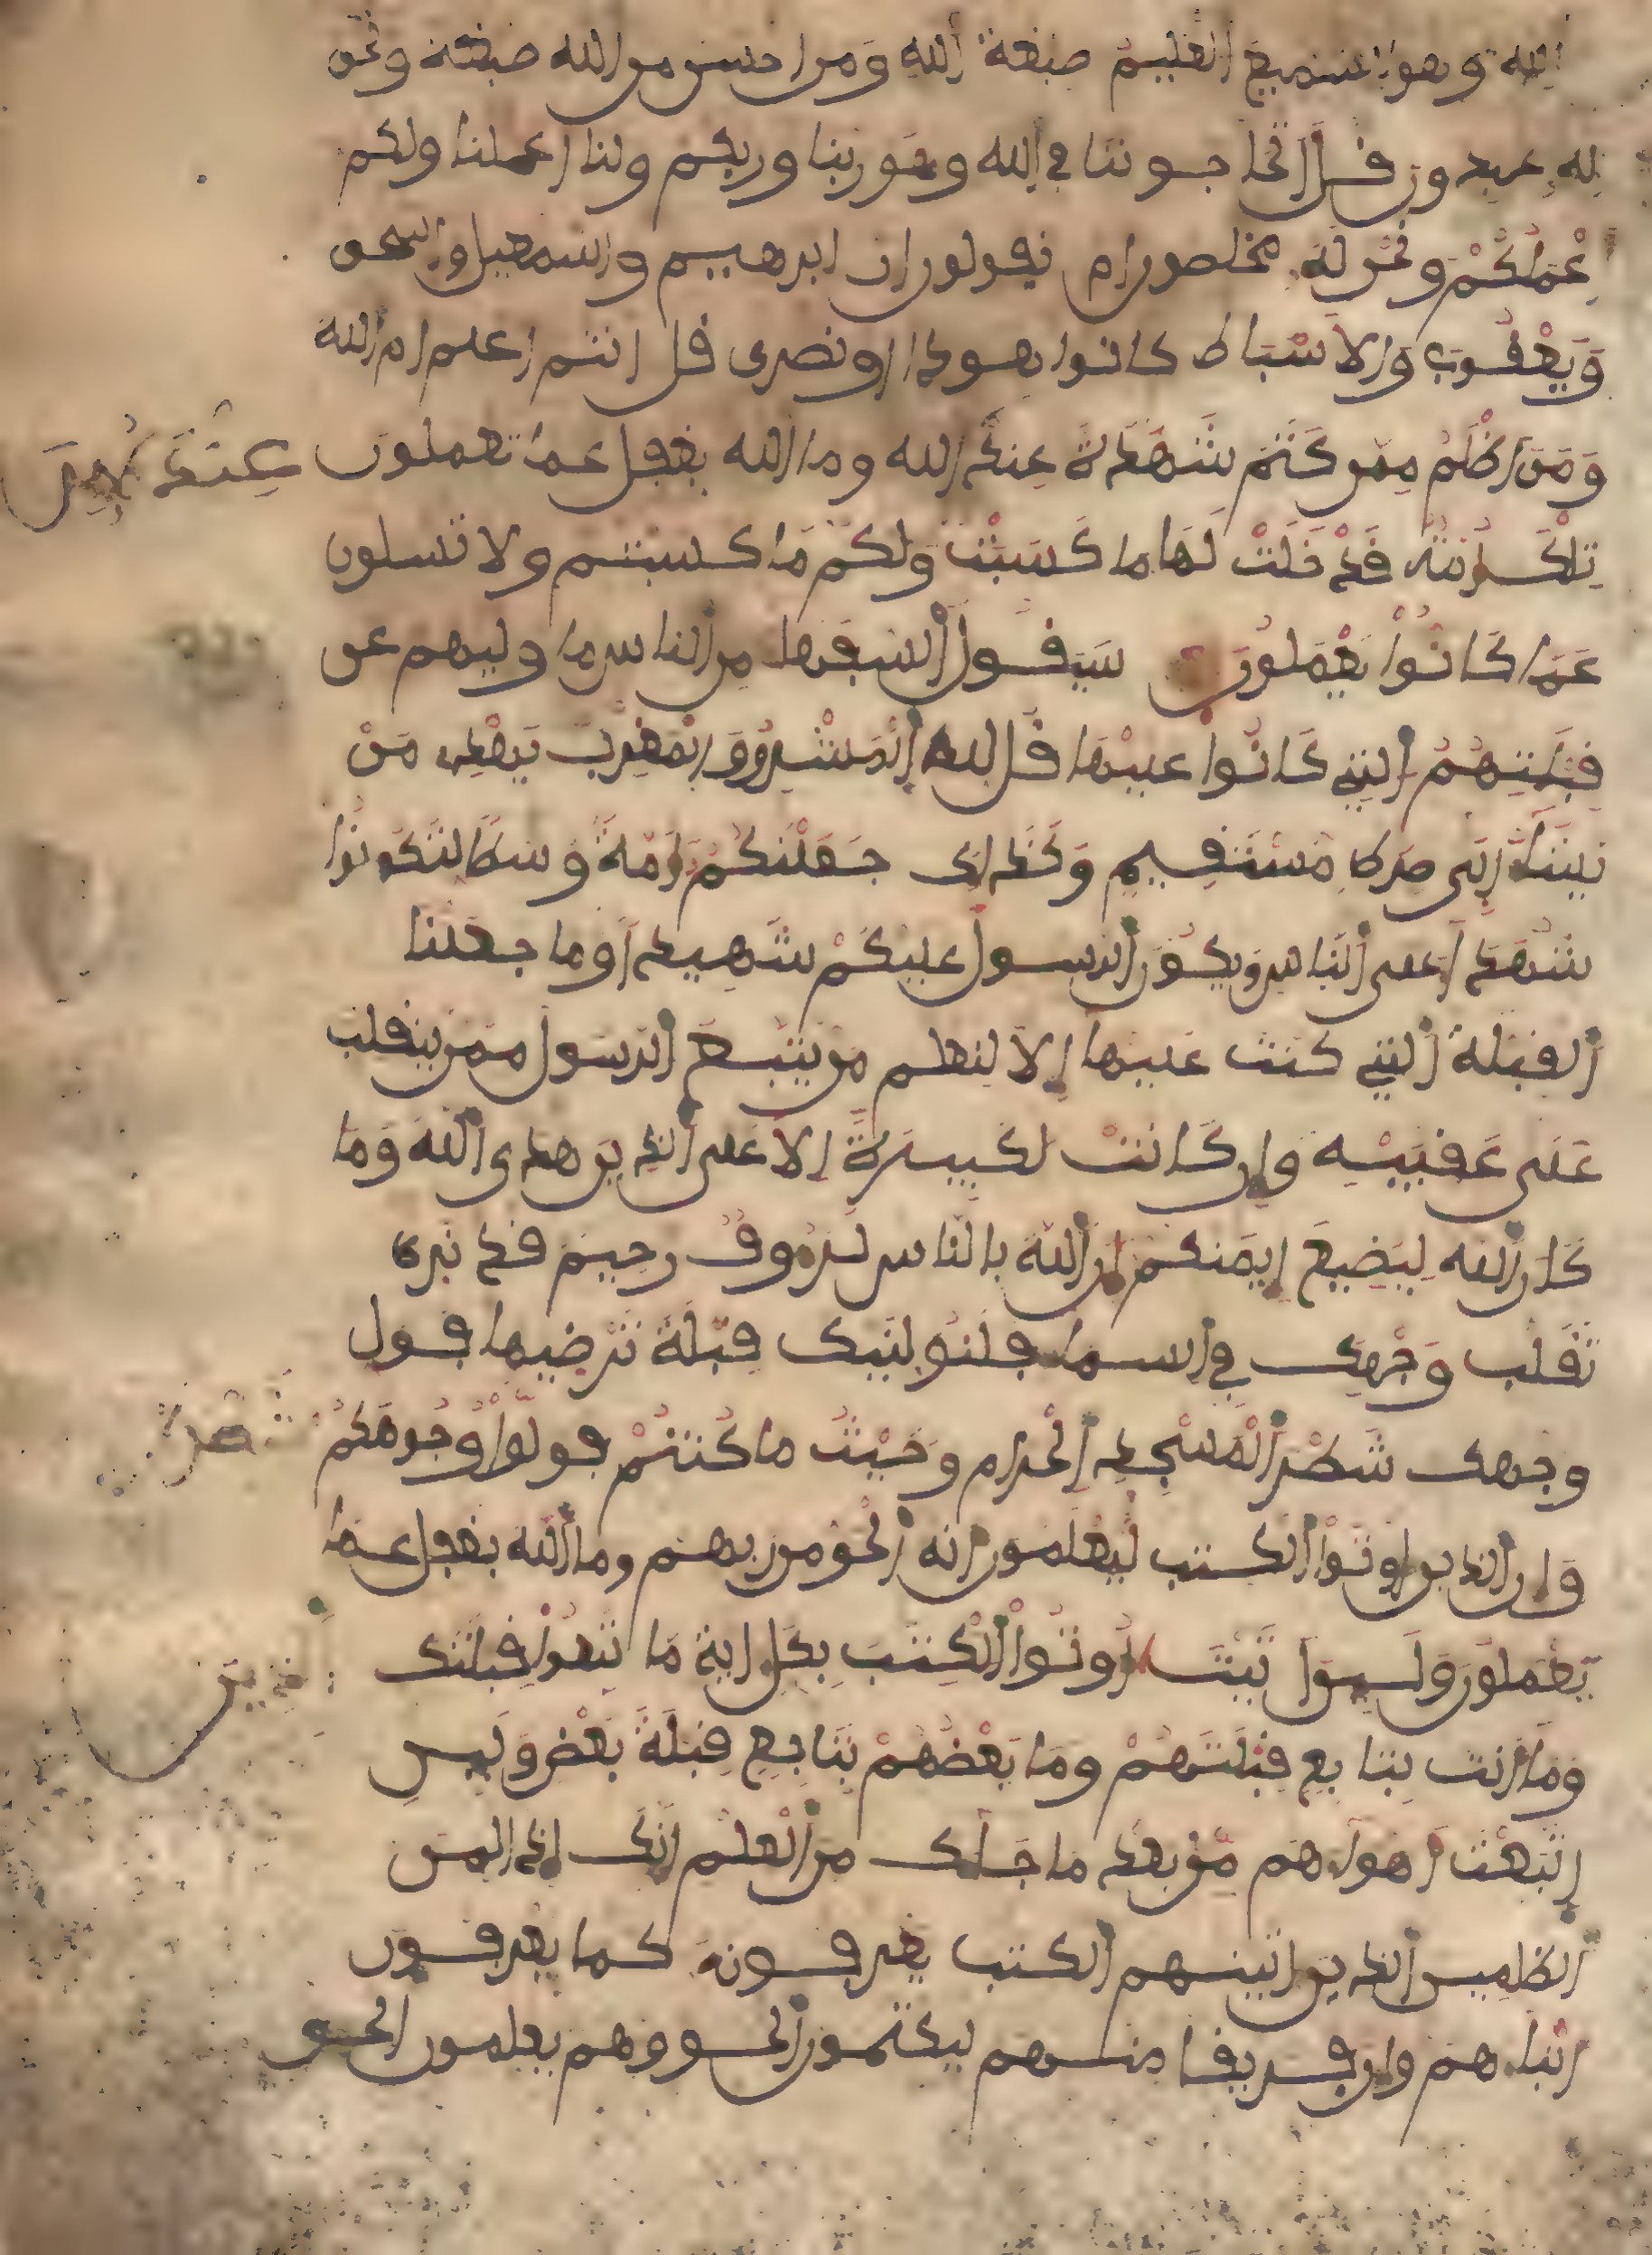 الله وهو السميع العليم صبغة الله ومن احسن من الله صبغة ونحن
له عبدون قل اتحاجوننا في الله وهو ربنا وربكم ولنا اعملنا ولكم
اعملكم ونحن له مخلصون ام يقولون ان ابرهيم واسمعيل واسحق
ويعقوب والاسباط كانوا هودا او نصرى قل انتم اعلم ام الله
ومن اظلم ممن كتم شهدة عنده من الله وما الله بغفل عما تعملون
تلك امة قد خلت لها ما كسبت ولكم ما كسبتم ولا تسلون
عما كانوا يعملون سيقول السفها من الناس ما وليهم عن
قبلتهم التي كانوا عليها قل لله المشرق والمغرب يهدي من
يشا الى صرط مستقيم وكذلك جعلنكم امة وسطا لتكونوا
شهدا على الناس ويكون الرسول عليكم شهيدا وما جعلنا
القبلة التي كنت عليها الا لنعلم من يتبع الرسول ممن ينقلب
على عقبيه وان كانت لكبيرة الا على الذين هدى الله وما
كان الله ليضيع ايمنكم ان الله بالناس لروف رحيم قد نرى
تقلب وجهك في السما فلنولينك قبلة ترضيها فول
وجهك شطر المسجد الحرام وحيث ما كنتم فولوا وجوهكم
شطره
وان الذين اوتوا الكتب ليعلمون انه الحق من ربهم وما الله بغفل عما
يعملون ولين اتيت اوتوا الكتب بكل اية ما تبعوا قبلتك
الذين
وما انت بتابع قبلتهم وما بعضهم بتابع قبلة بعض ولين
اتبعت اهواهم من بعد ما جاك من العلم انك اذا لمن
الظلمين الذين اتينهم الكتب يعرفونه كما يعرفون
ابناهم وان فريقا منهم ليكتمون الحق وهم يعلمون الحق